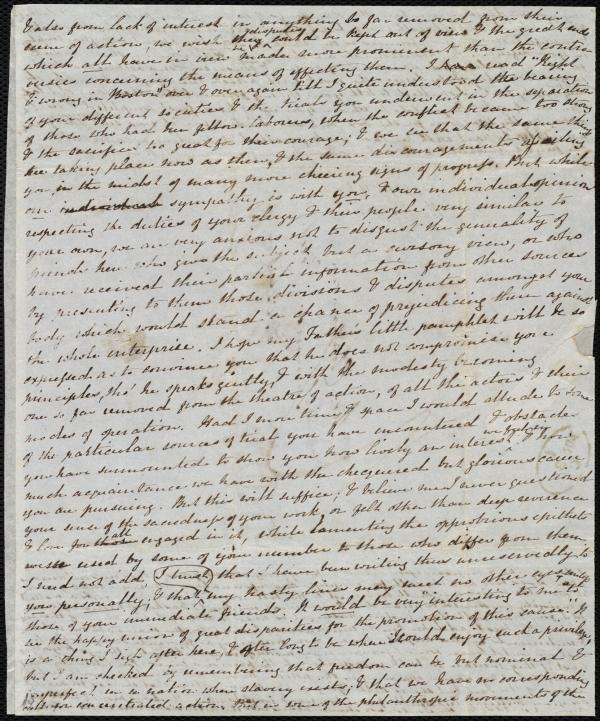 & also from lack of interest in anything so far removed from their
scene of action, we wish these disputes could be kept out of view & the great ends
which all have in view made more prominent than the contro-
versies concerning the means of effecting them. I have read "Right
& wrong in Boston" over & over again till I quite understood the bearing
of your different societies & the trials you underwent in the separation
of those who had been fellow laborers, when the conflict became too strong
& the sacrifice too great for their courage; & we see that the same things
are taking place now as then, & the same discouragements assailing
you, in the midst of many more cheering signs of progress. But while
our individual sympathy is with you, & our individual opinion
respecting the duties of your clergy & their people very similar to
your own, we are very anxious not to disgust the generality of
minds here who give the subject but a cursory view, or who
have received their partial information from other sources
by presenting to them those divisions & disputes amongst your
body which would stand a chance of prejudicing them against
the whole enterprise. I hope my Father's little pamphlet will be so
expressed as to convince you that he does not compromise your
principles, tho' he speaks gently, & with the modesty becoming
one so far removed from the theatre of action, of all the actors & their
modes of operation. Had I more time & space I would allude to some
of the particular sources of trial you have encountered & obstacles
you have surmounted to show you how lively an interest, & how
much acquaintance we have with the chequered but glorious cause
you are pursuing. But this will suffice; & believe me I never questioned
your sense of the sacredness of your work, or felt other than deep reverence
& love for all engaged in it, while lamenting the opprobrious epithets
used by some of your number to those who differ from them.
I need not add, I trust, that I have been writing thus unreservedly to
you personally, & that my hasty lines may meet no other eyes
those of your immediate friends. It would be very interesting to me to
see the happy union of great disparities for the promotion of this cause. It
is a thing I sigh after here, & often long to be where I could enjoy such a privilege,
but I am checked by remembering that freedom can be but nominal &
imperfect in a nation where slavery exists; & that we have no corresponding
for concentrated action. But in some of the philanthropic movements of the